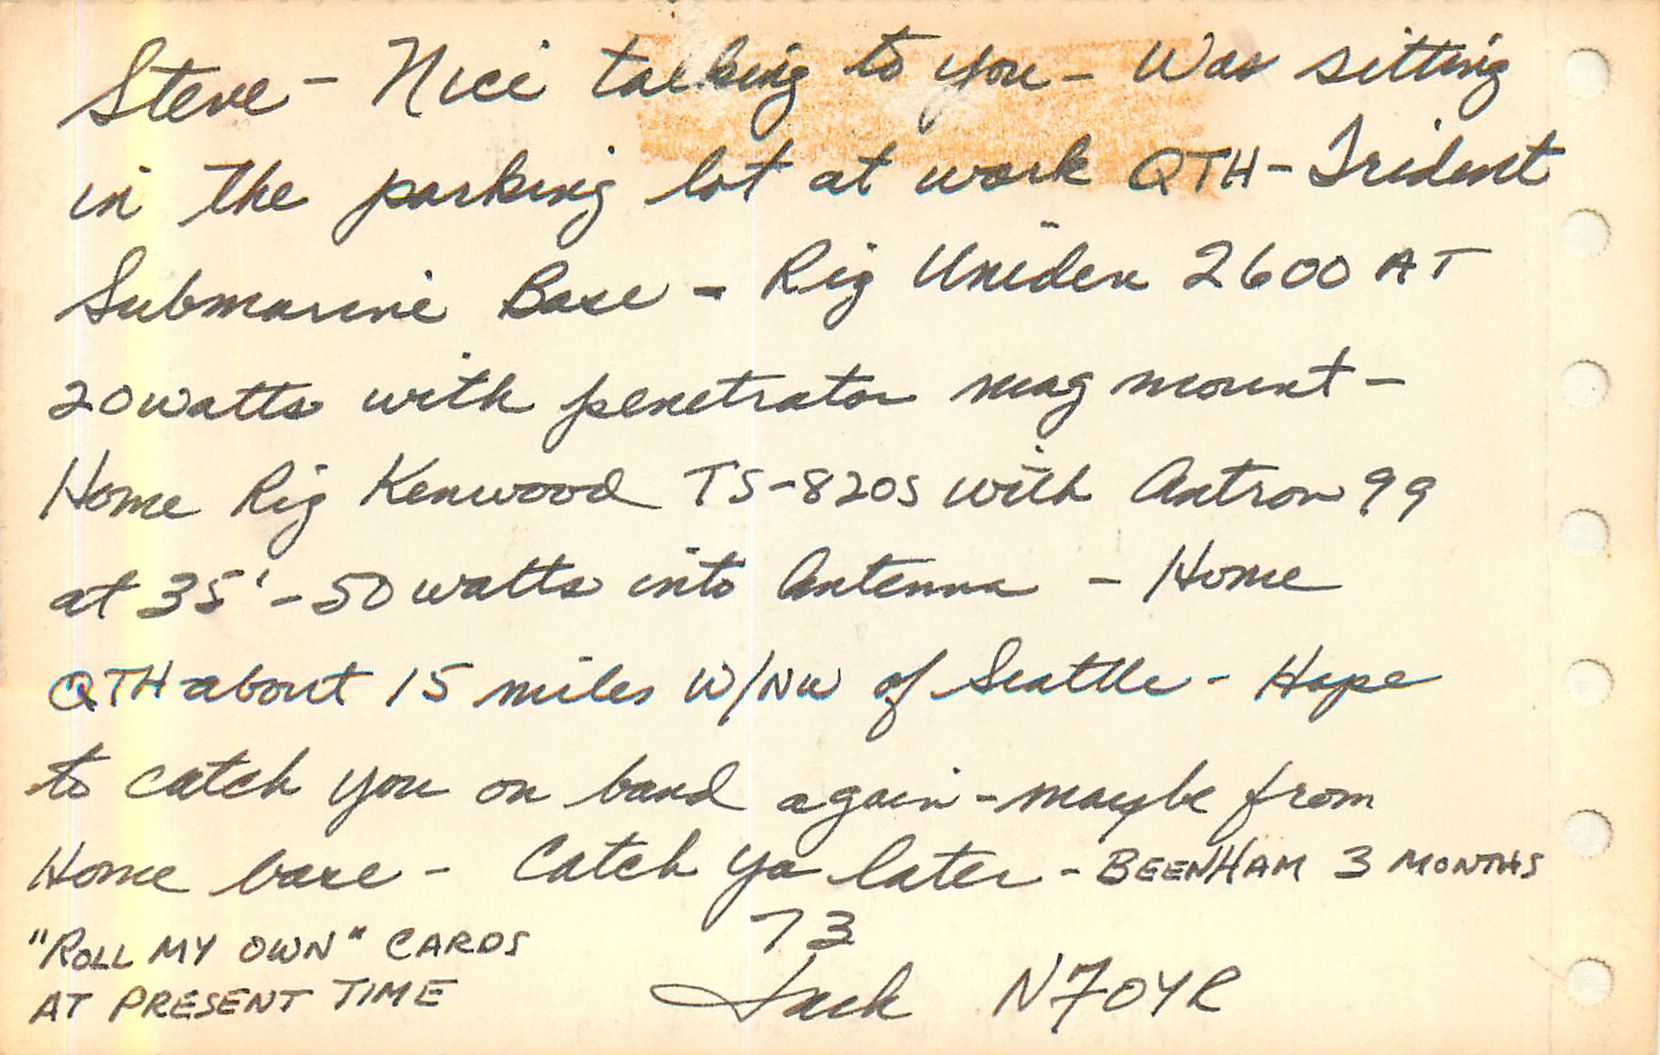 Steve - Nice talking to you - Was sitting
in the parking lot at work QTH - Trident
Submarine Base - Rig Uniden 2600 AT
20 watts with penetrator mag mount -
Home Rig Kenwood TS-820S with Antron 99
at 35' - 50 watts into Antenna - Home
QTH about 15 miles W/NW of Seattle - Hope
to catch you on band again - maybe from
Home base - Catch ya later - BEEN HAM 3 MONTHS
"ROLL MY OWN" CARDS
AT PRESENT TIME
73
Jack N7OYR